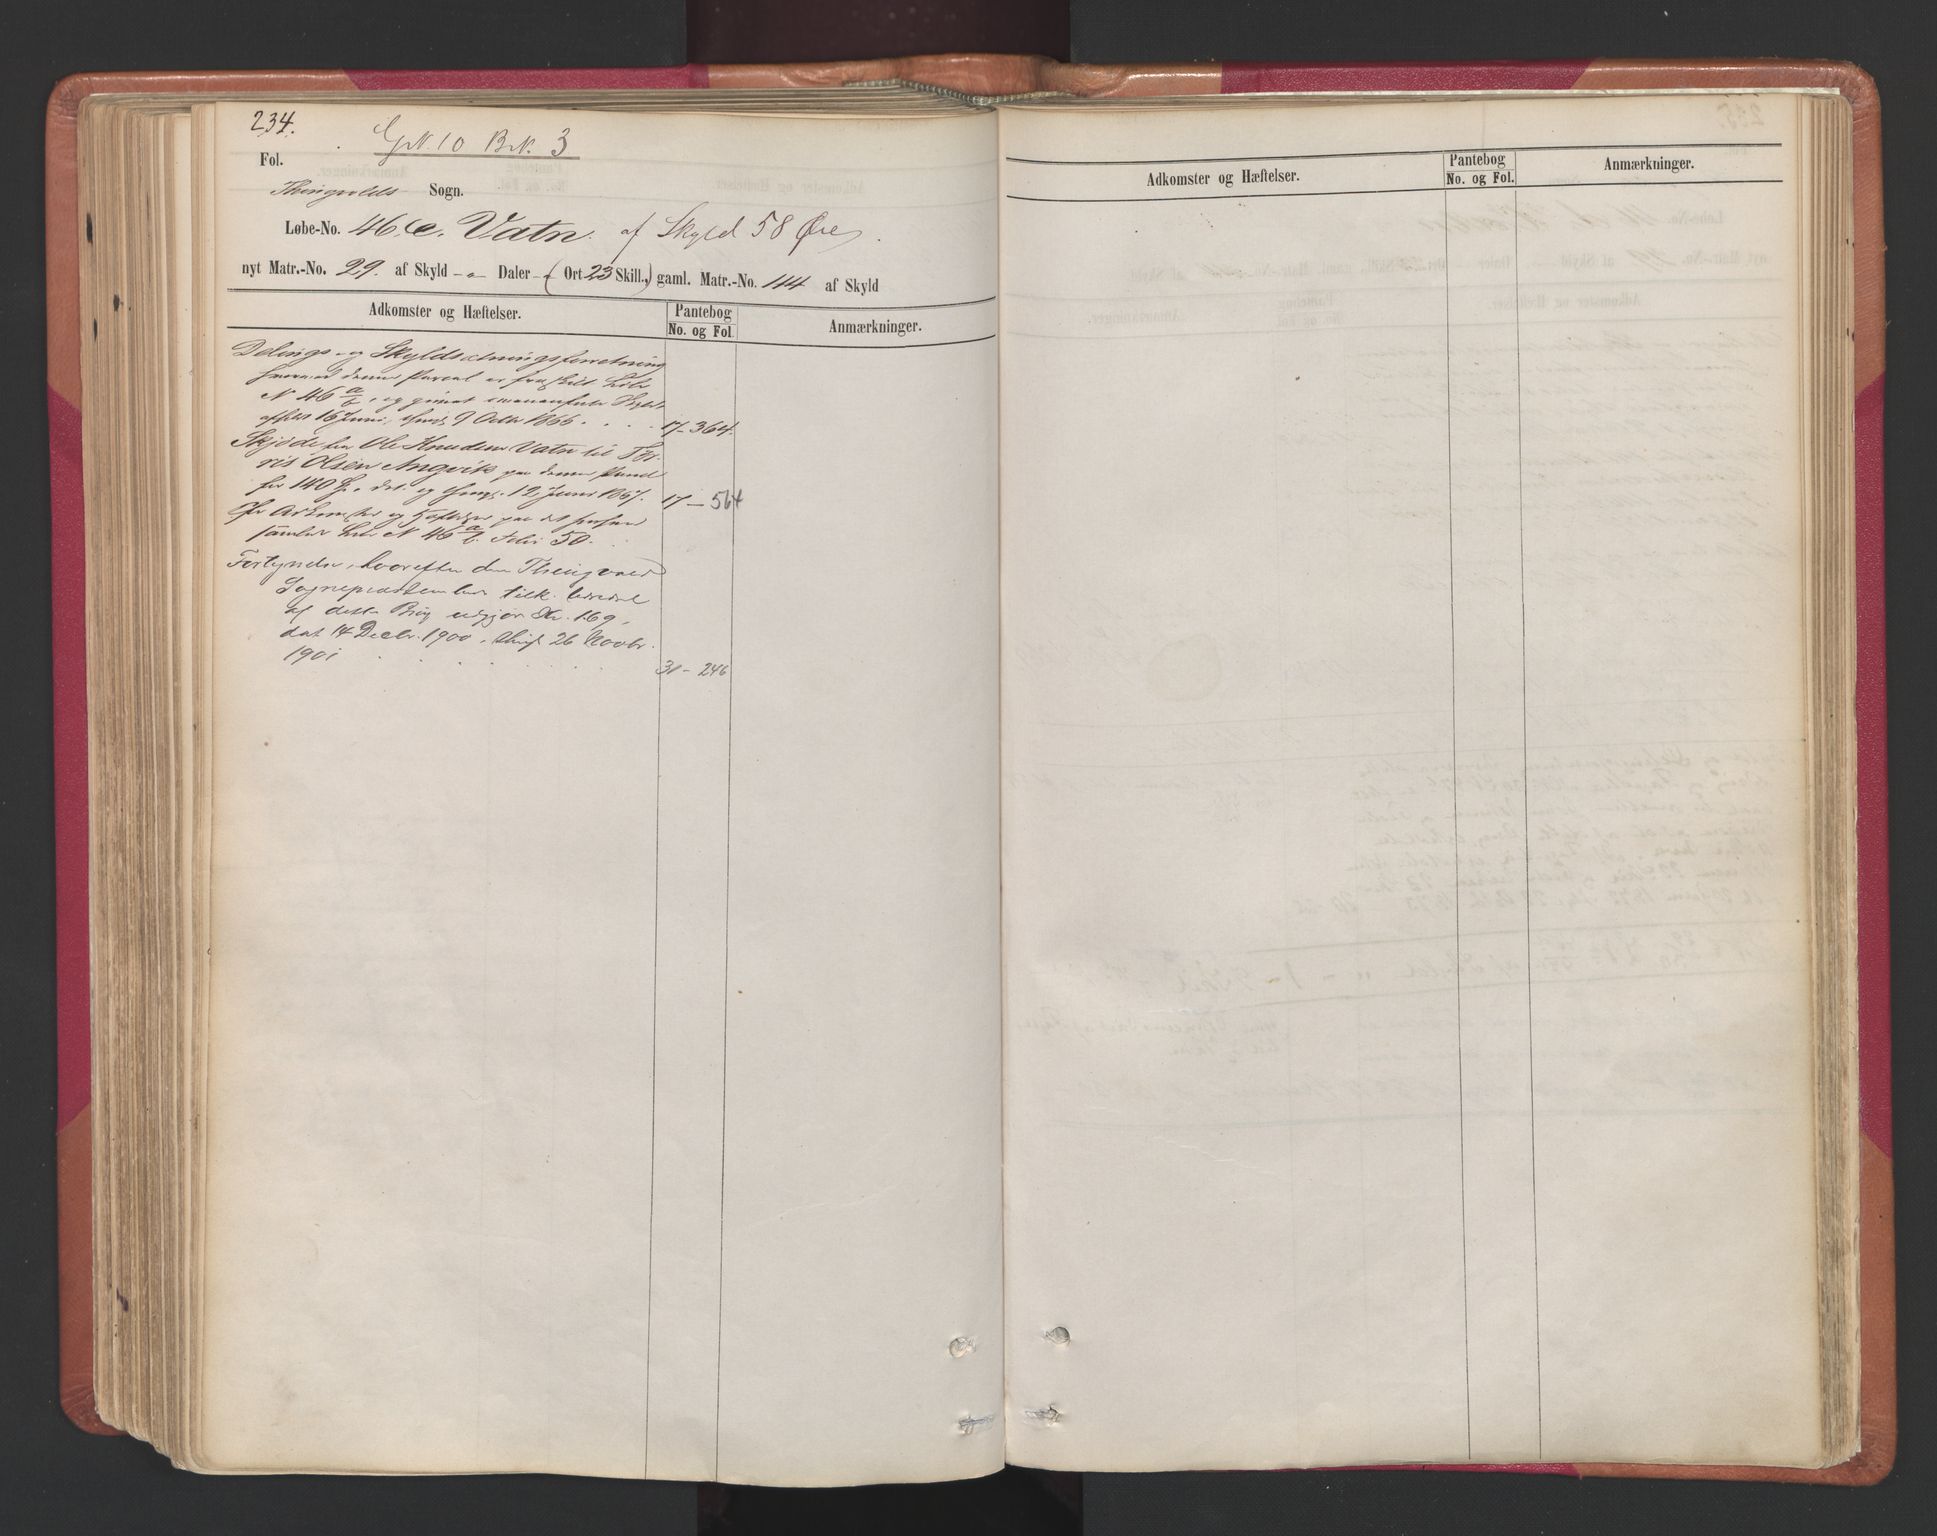 234.
G.N. 10 B.N. 3
Fol.
Thingvolds Sogn.
Løbe-No. 46, c. Vatn. af Skyld 58 Øre
nyt Matr.-No. 29. af Skyld - " Daler - " (Ort 23 Skill.,) gaml. Matr.-No. 114 af Skyld
Adkomster og Hæftelser. Pantebog Anmærkninger.
No. og Fol.
Delings- og Skyldsætningsforretning
hvorved denne Parcel er fraskilt Løbe
N 46 a/b, og givet ovenanførte Skyld
afholdt 16 Juni, thingl. 9 Octbr 1866. . . . . 17-364.
Skjøde fra Ole Knudsen Vatn til Tør-
ris Olsen Angvik paa denne Parcel
for 140 Spd., dat. og thingl. 12 Juni 1867. 17 - 564
Øvr. Adkomster og Hæftelser paa det
samlede Løbe N 46 a/b Folio 50.
Forlyndelse, hvorefter den Thingvold
Sognepræstembede tilk. Landskyld
af dette Brug udgjør Kr. 1.69,
dat 14 Decbr. 1900, thingl. 26 Novbr.
1901 . . . . . . 31 - 246
Adkomster og Hæftelser. Pantebog Anmærkninger.
No. og Fol.